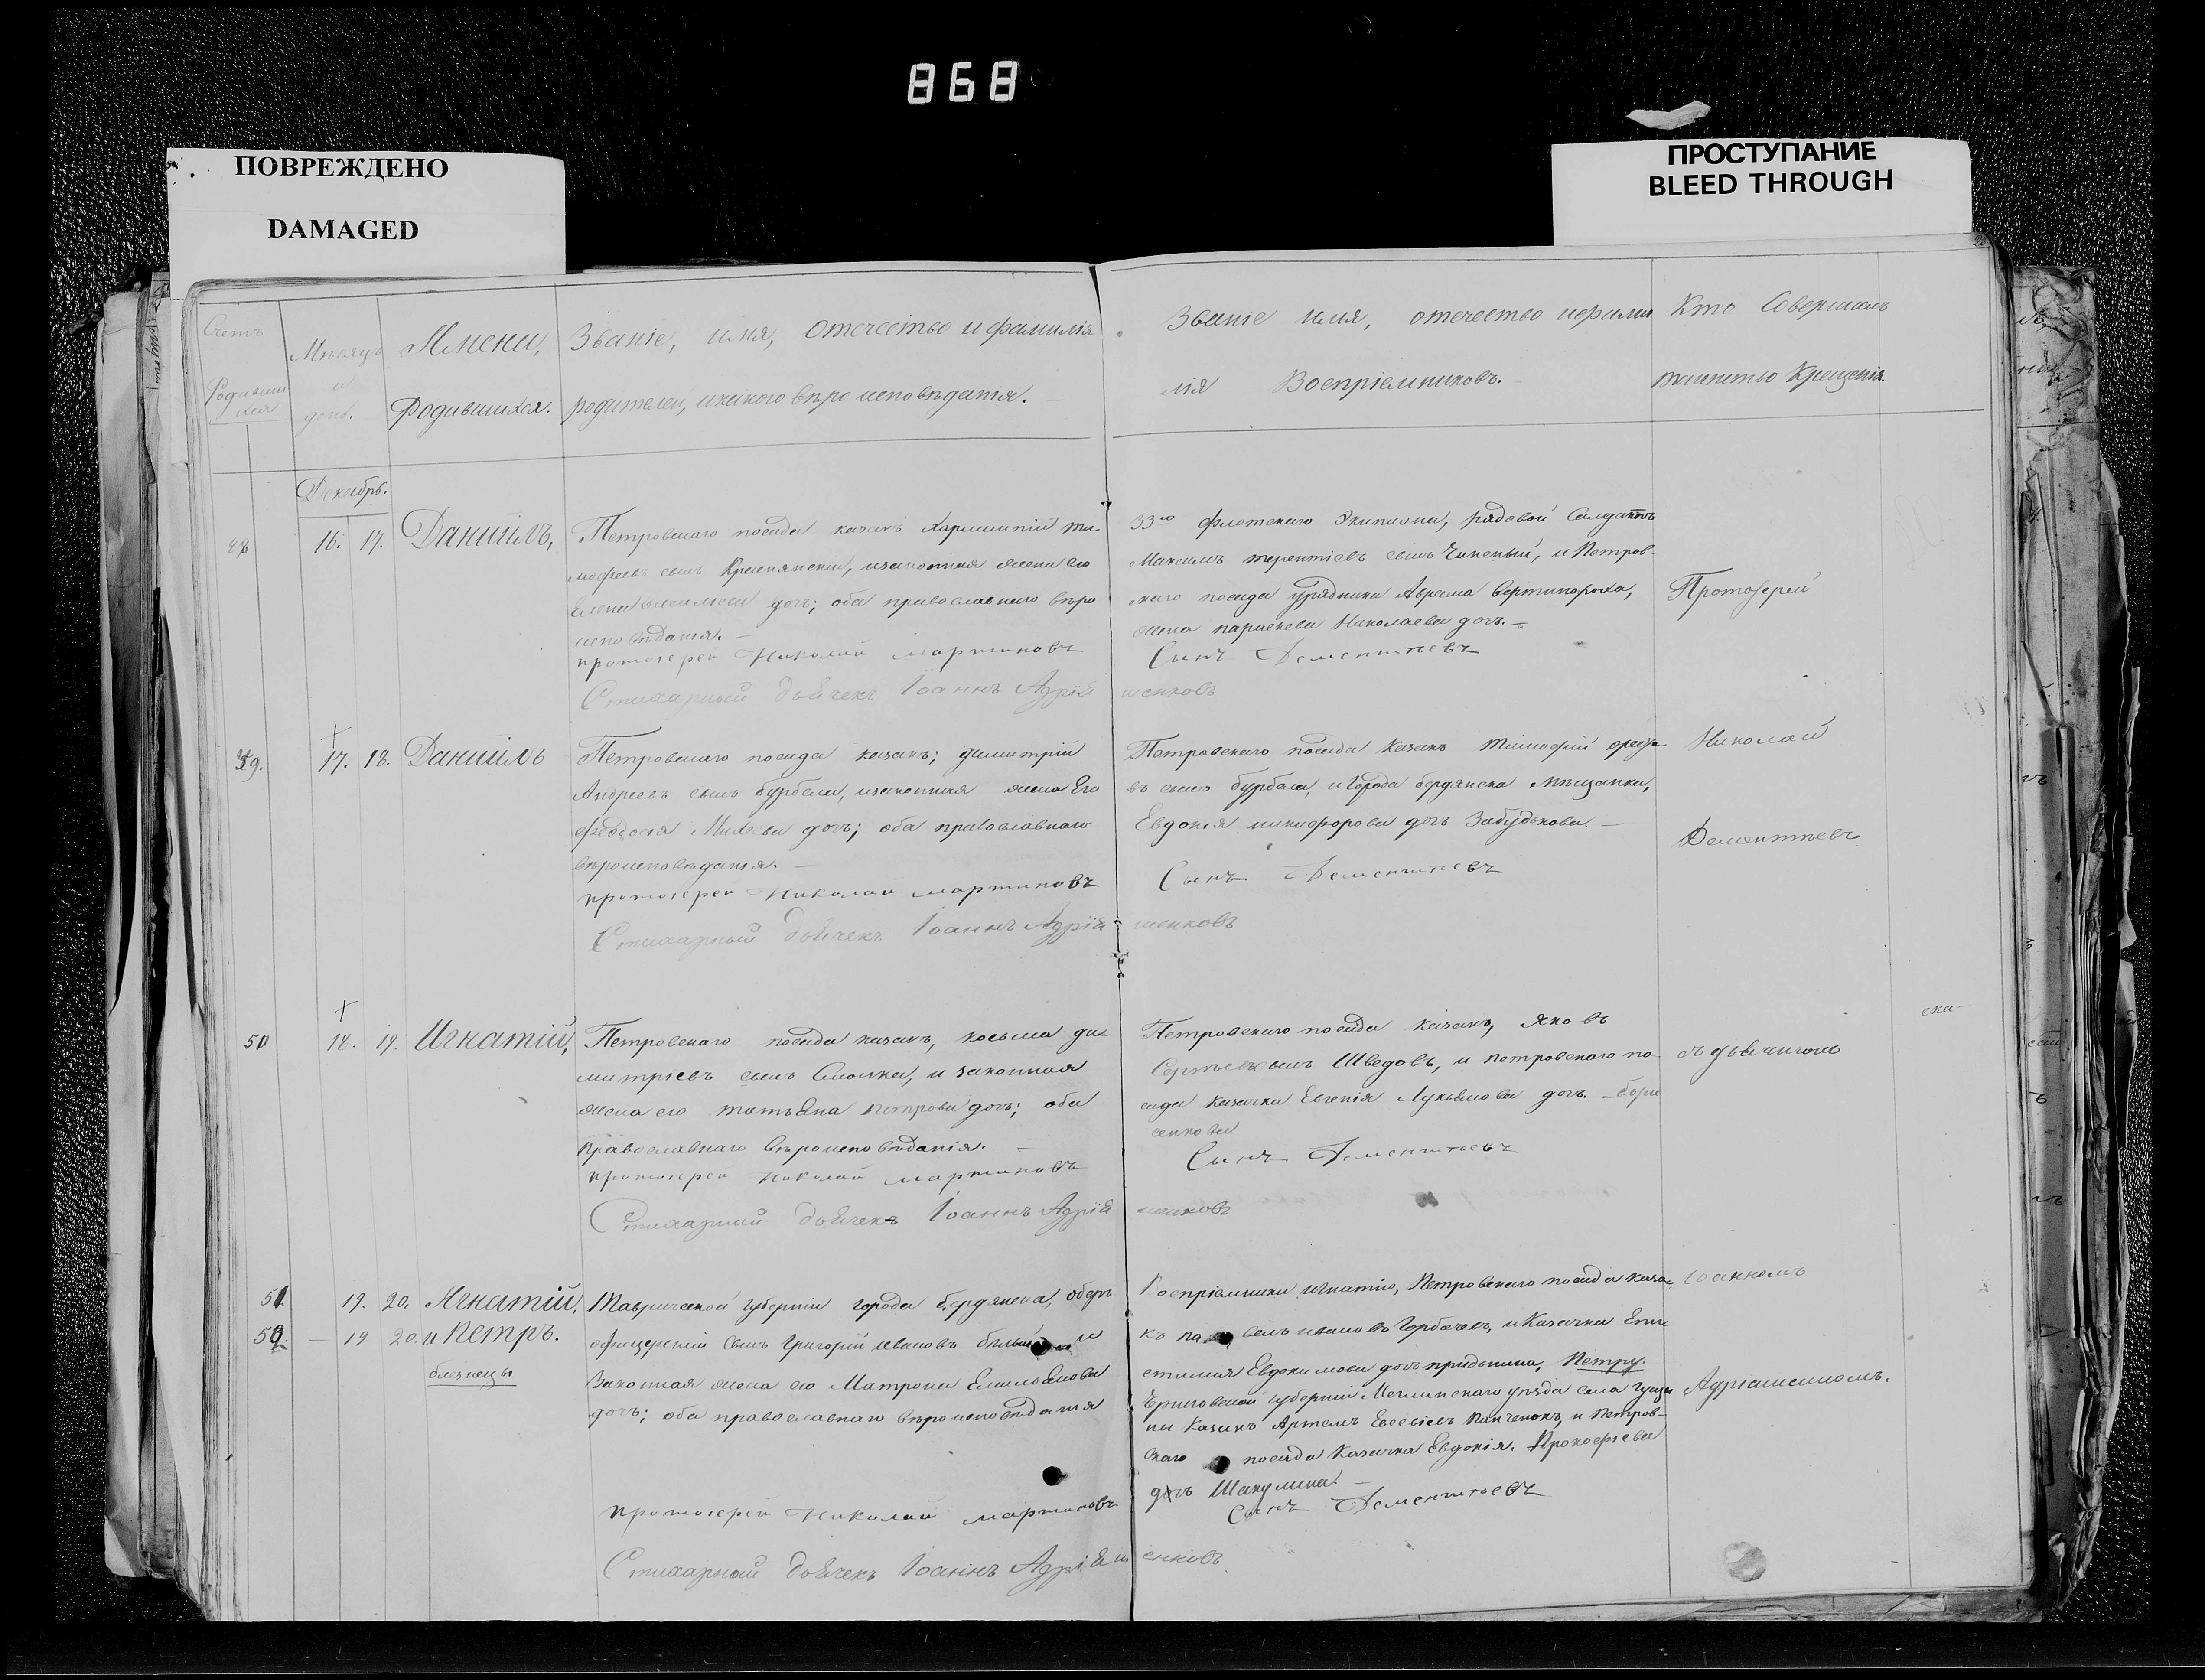 868
ПОВРЕЖДЕНО
DAMAGED
ПРОСТУПАНИЕ
BLEED THROUGH
Счетъ
Родивши
хся
Мѣсяцъ
и
день.
Имена,
Родившихся.
Званіе, имя, отечество и фамилія
родителей, и какого вѣроисповѣданія.
Званіе имя, отечество и фами
лія Воспріемниковъ.
Кто Совершалъ
таинство Крещенія.
Декабрь.
48
16. 17.
Даніилъ,
Петровскаго посада казакъ Харлампій ти-
мофеевъ сынъ Краснянскій, и законная жена его
Елена васильева дочь; оба православнаго вѣро
исповѣданія.
протоіерей Николай мартиновъ
Стихарный дьячекъ Іоаннъ Адрія
33го флотскаго Экипажа, рядовой Салдатъ
Максимъ терентіевъ сынъ, и Петров-
скаго посада урядника Аврама Вертипороха,
жена параскева Николаева дочь.
Сынъ Дементіевъ
шенковъ
Протоіерей
49.
17. 18.
Даніилъ
Петровскаго посада казакъ; димитрій
Андреевъ сынъ бурбела, и законная жена Его
феодосія дочь; оба православнаго
вѣроисповѣданія.
протоіерей Николай мартиновъ
Стихарный дьячекъ Іоаннъ Адрія
Петровскаго посада Казакъ тимофій
въ сынъ бурбела, и Города бердянска Мѣщанка,
Евдокія никифорова дочь Забудькова.
Сынъ Дементіевъ
шенковъ
Николай
Дементьевъ
50
18. 19.
Игнатій,
Петровскаго посада казакъ, косьма ди-
митріевъ сынъ Смолка, и законная
жена его татьяна петрова дочь; оба
православнаго вѣроисповѣданія.
протоіерей Николай мартиновъ
Стихарный дьячекъ Іоаннъ Адрія
Петровскаго посада казакъ, Яковъ
Сергѣевъ сынъ Шведовъ, и петровскаго по-
сада казачка Евгенія Лукьянова дочь. бори
сенкова
Сынъ Дементіевъ
шенковъ
съ дьячкомъ
51.
19. 20.
Игнатій,
52.
19 20.
и Петръ.
близнецы
Таврической губерніи города бердянска, оберъ
офицерскій сынъ Григорій ивановъ и
Законная жена его Матрона Емельянова
дочь; оба православнаго вѣроисповѣданія
протоіерей Николай мартиновъ
Стихарный дьячекъ Іоаннъ Адріяш
Воспріемники игнатію, Петровскаго посада каза-
къ павелъ ивановъ Горбачевъ, и Казачка Епи
стимия Евдокимова дочь, Петру.
Черниговской губерніи Мглинскаго уѣзда села
Казакъ Артемъ Евсеевъ Панченокъ, и Петров-
скаго посада Казачка Евдокія. Прокофіева
дочь Шакулина.
Сынъ Дементіевъ
енковъ
Іоанномъ
Адріашенкомъ.